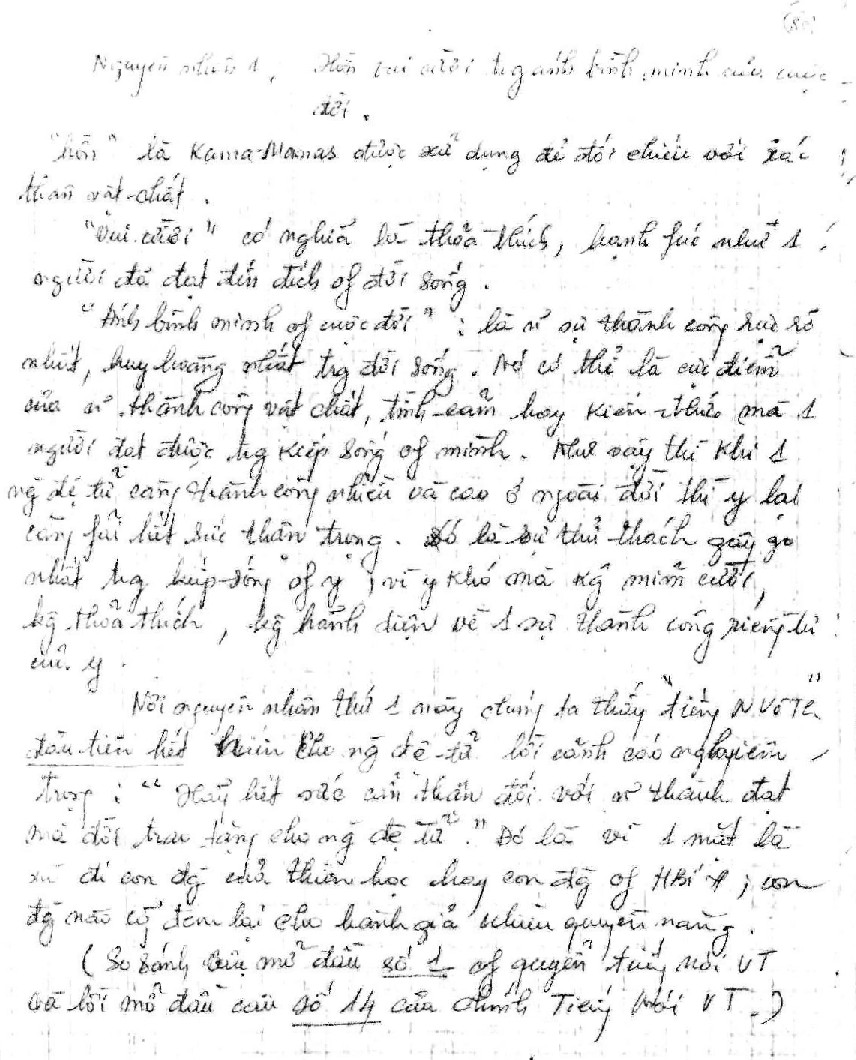 (80)
Nguyên nhân 1, Hồn vui cười trg ánh bình minh của cuộc
đời.
"hồn" là Kama-Manas được sử dụng để đối chiếu với xác
thân vật-chất.
"Vui cười" có nghĩa là thỏa thích, hạnh fúc như 1
người đã đạt đến đích of đời sống.
"Ánh bình minh of cuộc đời": là sự thành công rực rỡ
nhất, huy hoàng nhất trg đời sống. Nó có thể là cực điểm
của thành công vật chất, tình-cảm hay kiến-thức mà 1
người đạt được trg kiếp sống of mình. Như vậy thì khi 1
ng đệ tử càng thành công nhiều và cao ở ngoài đời thì y lại
càng fải hết sức thận trọng. Đó là sự thử-thách gây go
nhất trg kiếp-sống of y, vì y khó mà kg mỉm cười,
kg thỏa thích, kg hãnh diện về 1 sự thành công riêng tư
của y.
Nơi nguyên nhân thứ 1 này chúng ta thấy "tiếng N Vô Th"
đầu tiên hết cho ng đệ-tử lời cảnh cáo nghiêm
trọng: "Hãy hết sức cẩn thận đối với thành đạt
mà đời trao tặng cho ng đệ tử." Đó là vì 1 mặt là
đi con đg của thiên học hay con đg of HBí #; con
đg nào cg đem lại cho hành giả nhiều quyền năng.
(So sánh câu mở đầu số 1 of quyển tiếng nói VT
và lời mở đầu câu số 14 của chính Tiếng Nói VT.)